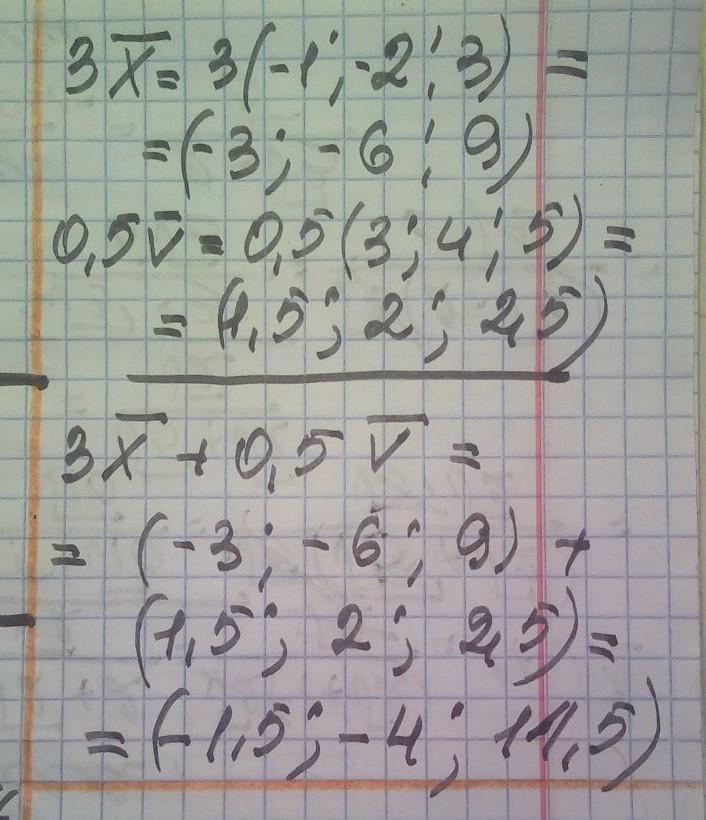 3x̅ = 3(-1; -2; 3) =
= (-3; -6; 9)
0,5v̅ = 0,5(3; 4; 5) =
= (1,5; 2; 2,5)
3x̅ + 0,5 v̅ =
= (-3; -6; 9) +
(1,5; 2; 2,5) =
= (-1,5; -4; 11,5)